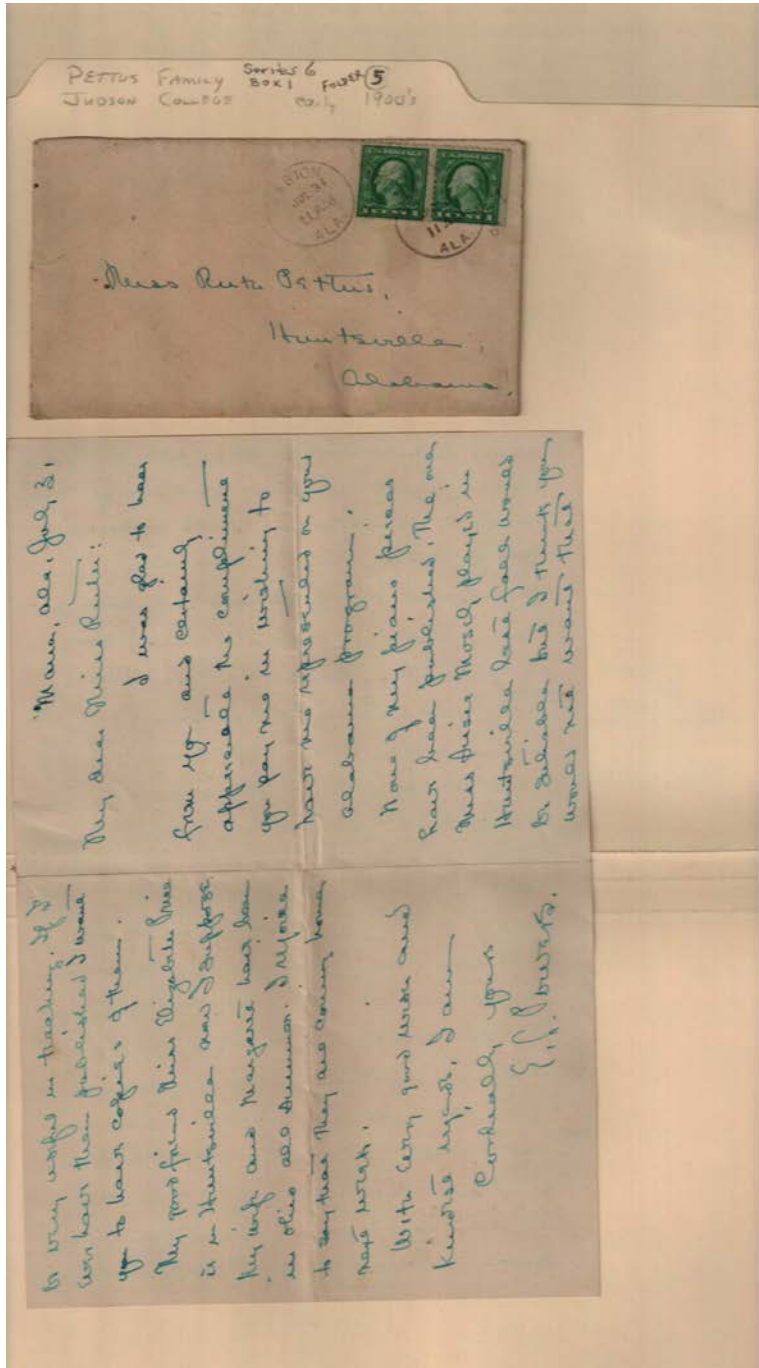 PETTUS FAMILY Series 6 Box 1 Folder 5
JUDSON COLLEGE early 1900's
MARION
JUL 31
11 AM
ALA.
11 A
ALA.
1 CENT 1
1 CENT 1
Miss Ruth Pettus,
Huntsville,
Alabama.
Marion, Ala, July 31
My dear Miss Ruth:
I was glad to hear
from you and certainly
appreciate the compliment
you pay me in wishing to
have me represented on your
Alabama program.
None of my piano pieces
have been published. The one
Miss Moseley played in
Huntsville last fall would
be suitable but I think you
would not want that
be very useful in teaching. If I
ever have them published I want
you to have copies of them.
My good friend Miss Elizabeth Price
is in Huntsville now I suppose.
My wife and Margaret have been
in Ohio all summer. I rejoice
to say that they are coming home
next week.
With every good wish and
kindest regards, I am
Cordially yours
E. L. Powers.